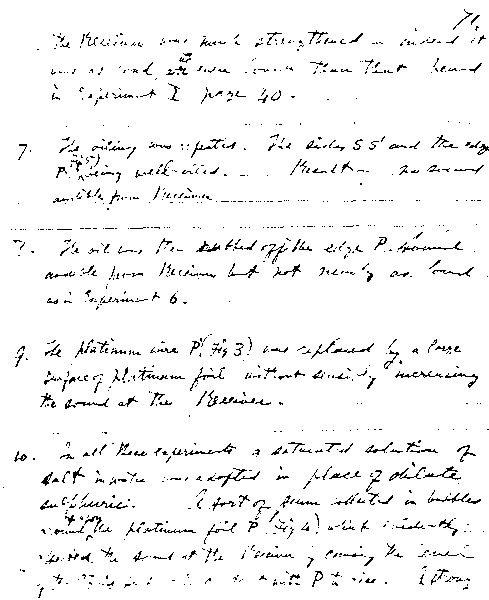 71.
the Receiver was much strengthened — indeed it
was as loud, if not even louder than that heard
in Experiment I page 40.
7. The oiling was repeated. The sides S S' and the edge
P (Fig 5) being well oiled. — Result — no sound
audible from Receiver
8. The oil was then rubbed off the edge P. Sound
audible from Receiver but not nearly as loud
as in Experiment 6.
9. The platinum wire P (Fig 3) was replaced by a large
surface of platinum foil without sensibly increasing
the sound at the Receiver.
10. In all these experiments a saturated solution of
salt in water was adopted in place of dilute
sulphuric. A sort of scum collected in bubbles
round the platinum foil P (Fig 4) which evidently
the sound at the Receiver by causing the
with P to rise. A strong